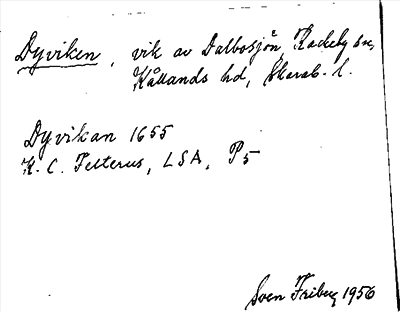 Dyviken, vik av Dalbosjön, Rackeby sn,
Kållands hd, Skarab. l.
Dyvikan 1655
K. C. Felterus, LSA, P5
Sven Friberg 1956